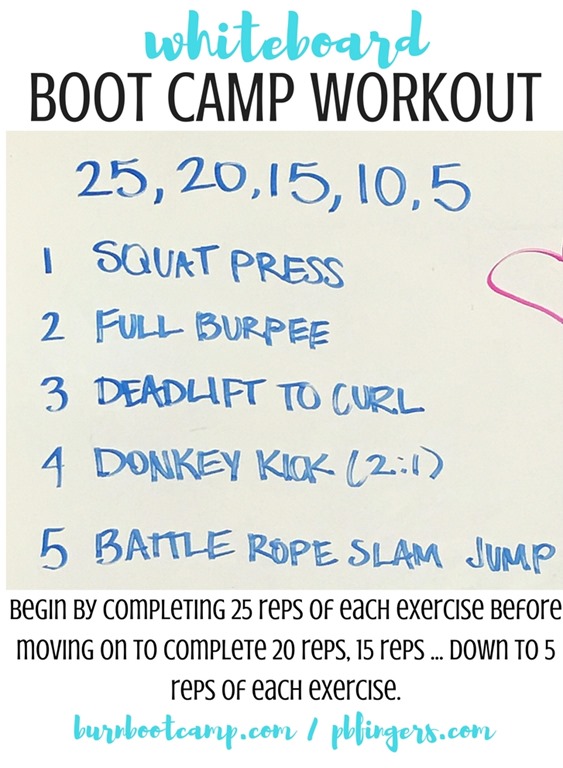 whiteboard
BOOT CAMP WORKOUT
25, 20, 15, 10, 5
1 SQUAT PRESS
2 FULL BURPEE
3 DEADLIFT TO CURL
4 DONKEY KICK (2:1)
5 BATTLE ROPE SLAM JUMP
Begin by completing 25 reps of each exercise before
moving on to complete 20 reps, 15 reps ... down to 5
reps of each exercise.
burnbootcamp.com / pbfingers.com